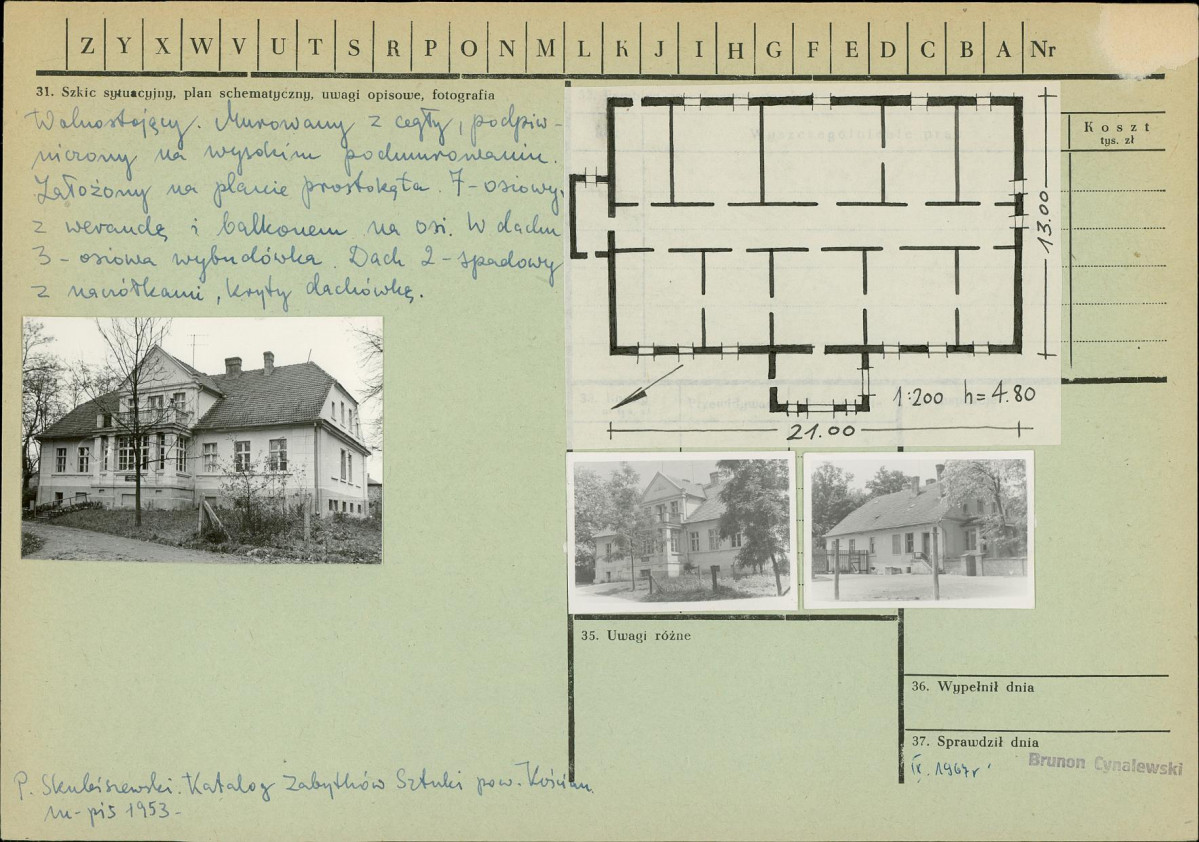 Z Y X W V U T S R P O N M L K J I H G F E D C B A Nr
31. Szkic sytuacyjny, plan schematyczny, uwagi opisowe, fotografia
Wolnostojący. Murowany z cegły, podpiw-
niczony na wysokim podmurowaniu.
Założony na planie prostokąta. 7-osiowy,
z werandą i balkonem na osi. W dachu
3-osiowa wybudówka. Dach 2-spadowy
z naczółkami, kryty dachówką.
Koszt
tys. zł
13.00
1:200 h=4.80
21.00
35. Uwagi różne
36. Wypełnił dnia
37. Sprawdził dnia
IX. 1967r
Brunon Cynalewski
P. Skubiszewski. Katalog Zabytków Sztuki pow. Kościan.
m-pis 1953-